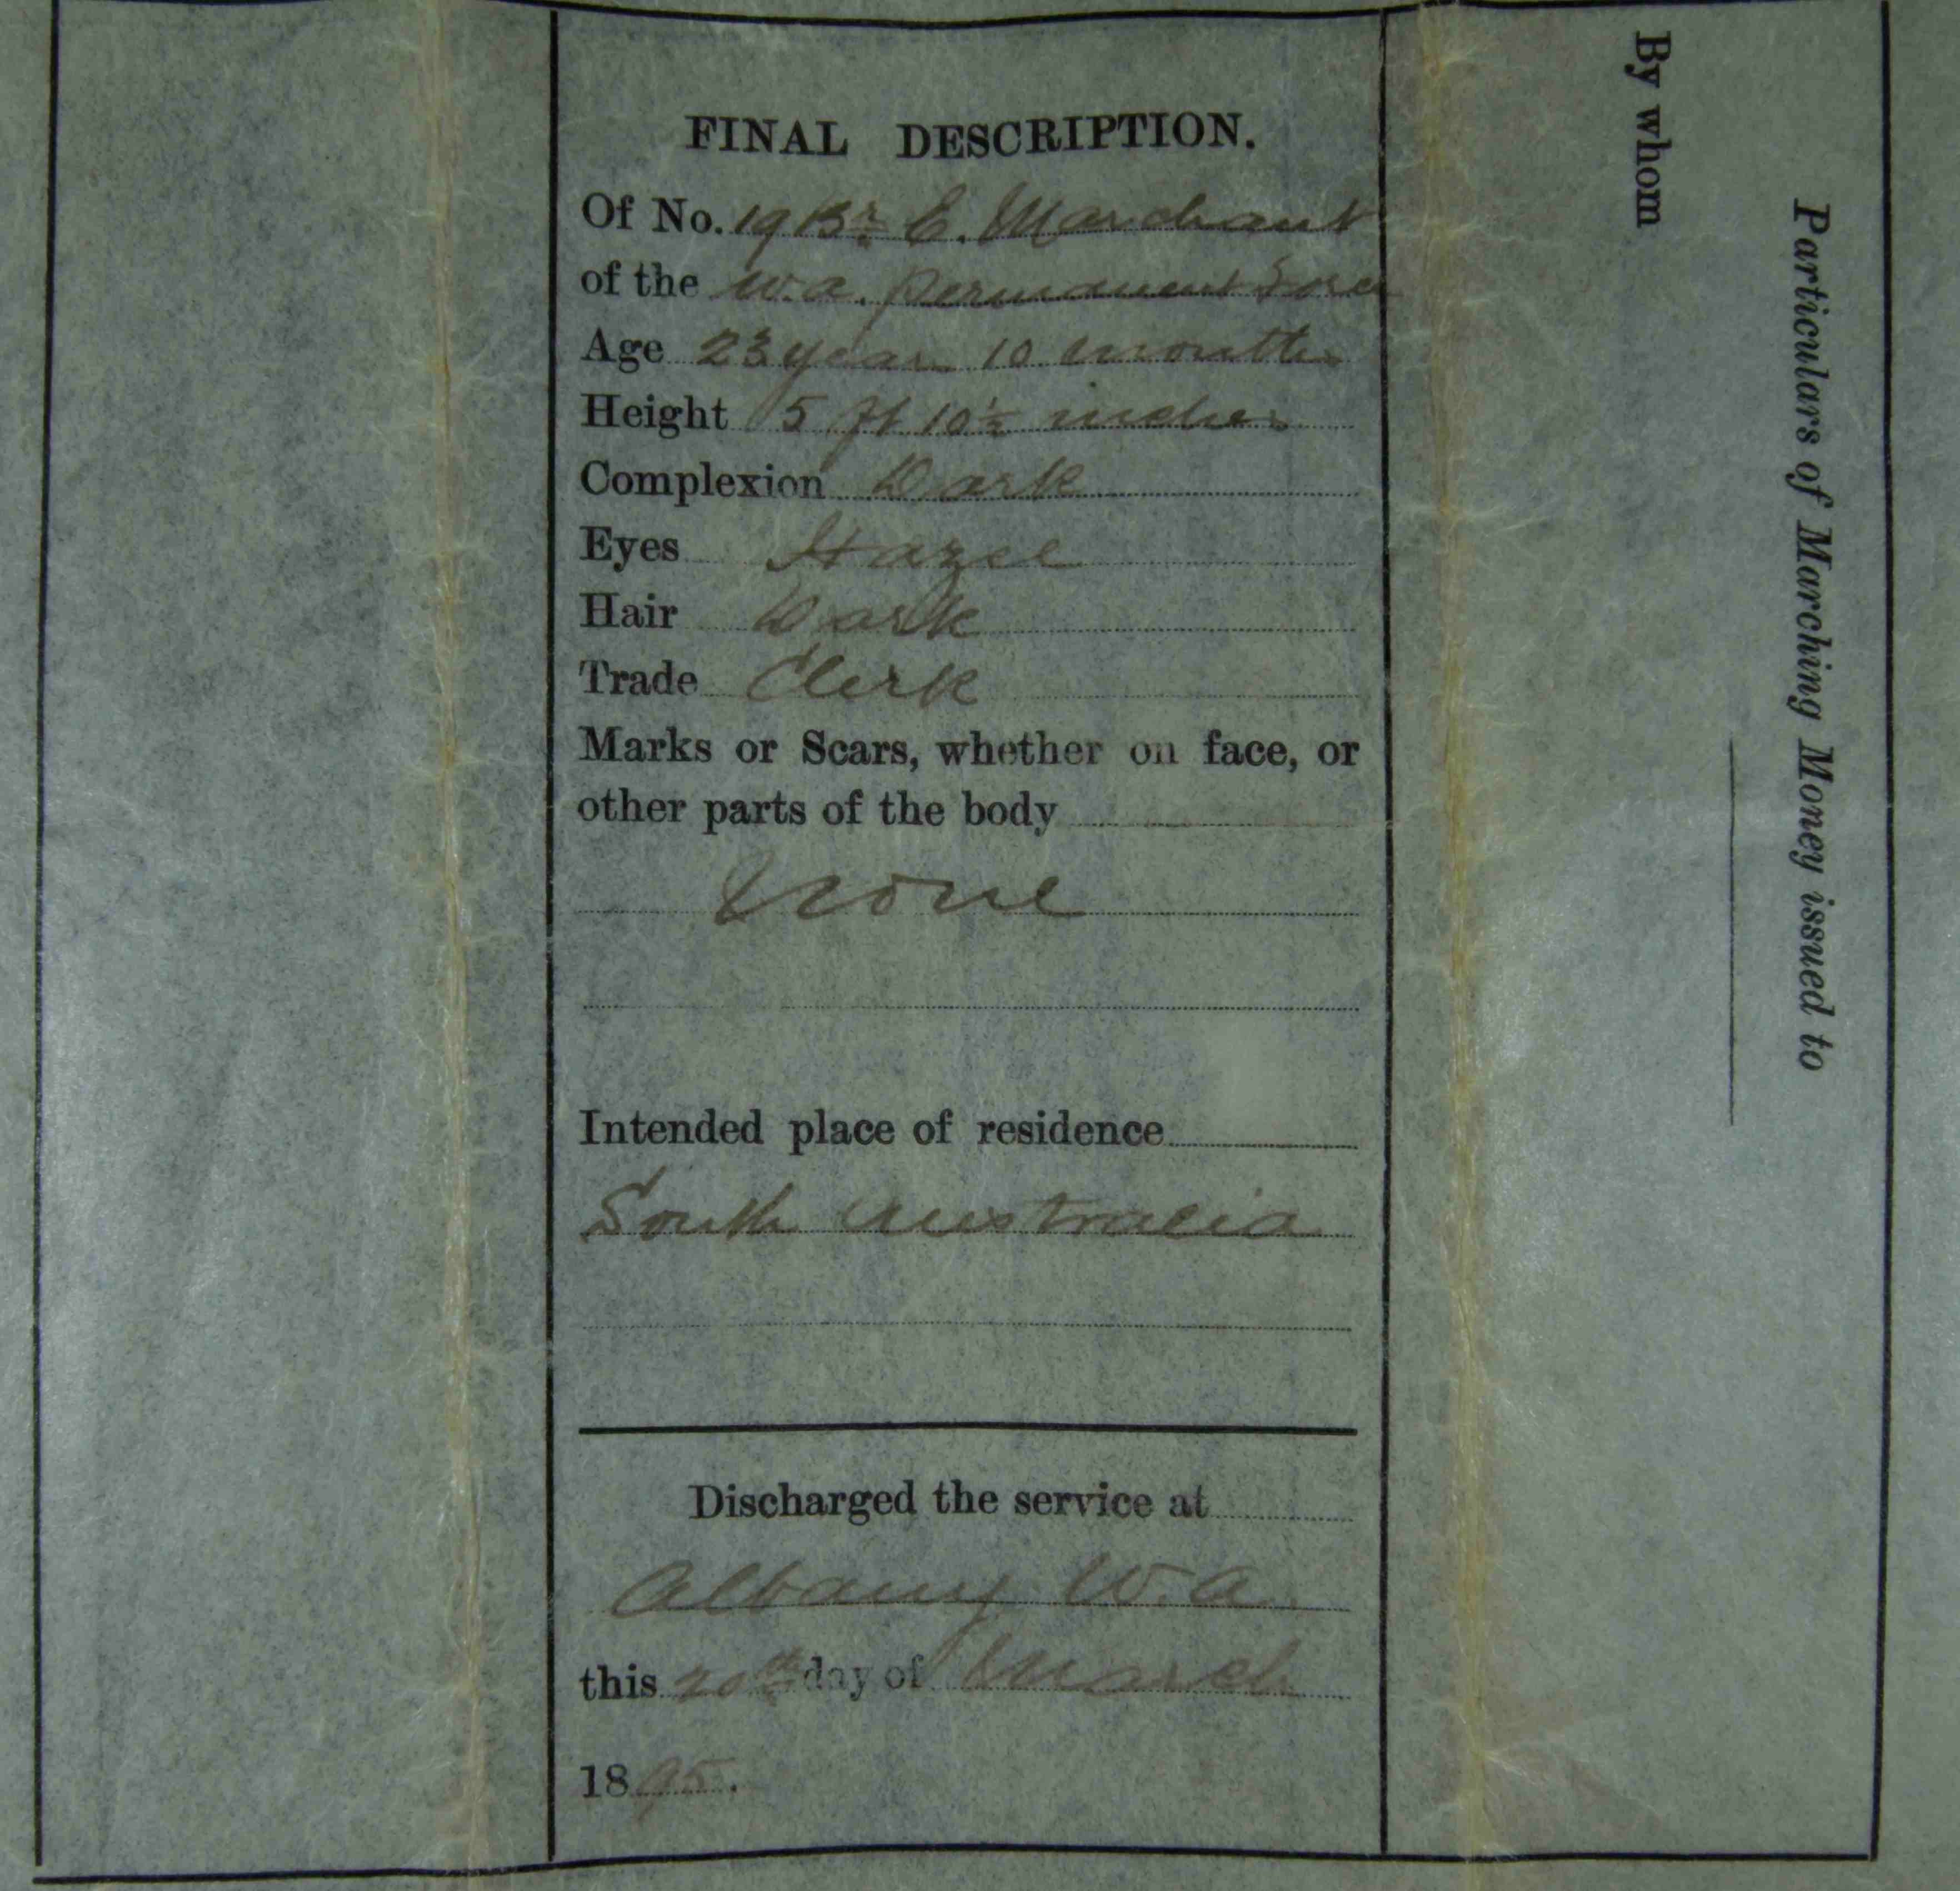 FINAL DESCRIPTION.
Of No. 19 Br. E. Marchant
of the W.A. Permanent Force
Age 23 years 10 months
Height 5 ft 10½ inches
Complexion Dark
Eyes Hazel
Hair Dark
Trade Clerk
Marks or Scars, whether on face, or
other parts of the body
None
Intended place of residence
South Australia
Discharged the service at
Albany W.A.
this 20th day of March
1895.
By whom
Particulars of Marching Money issued to